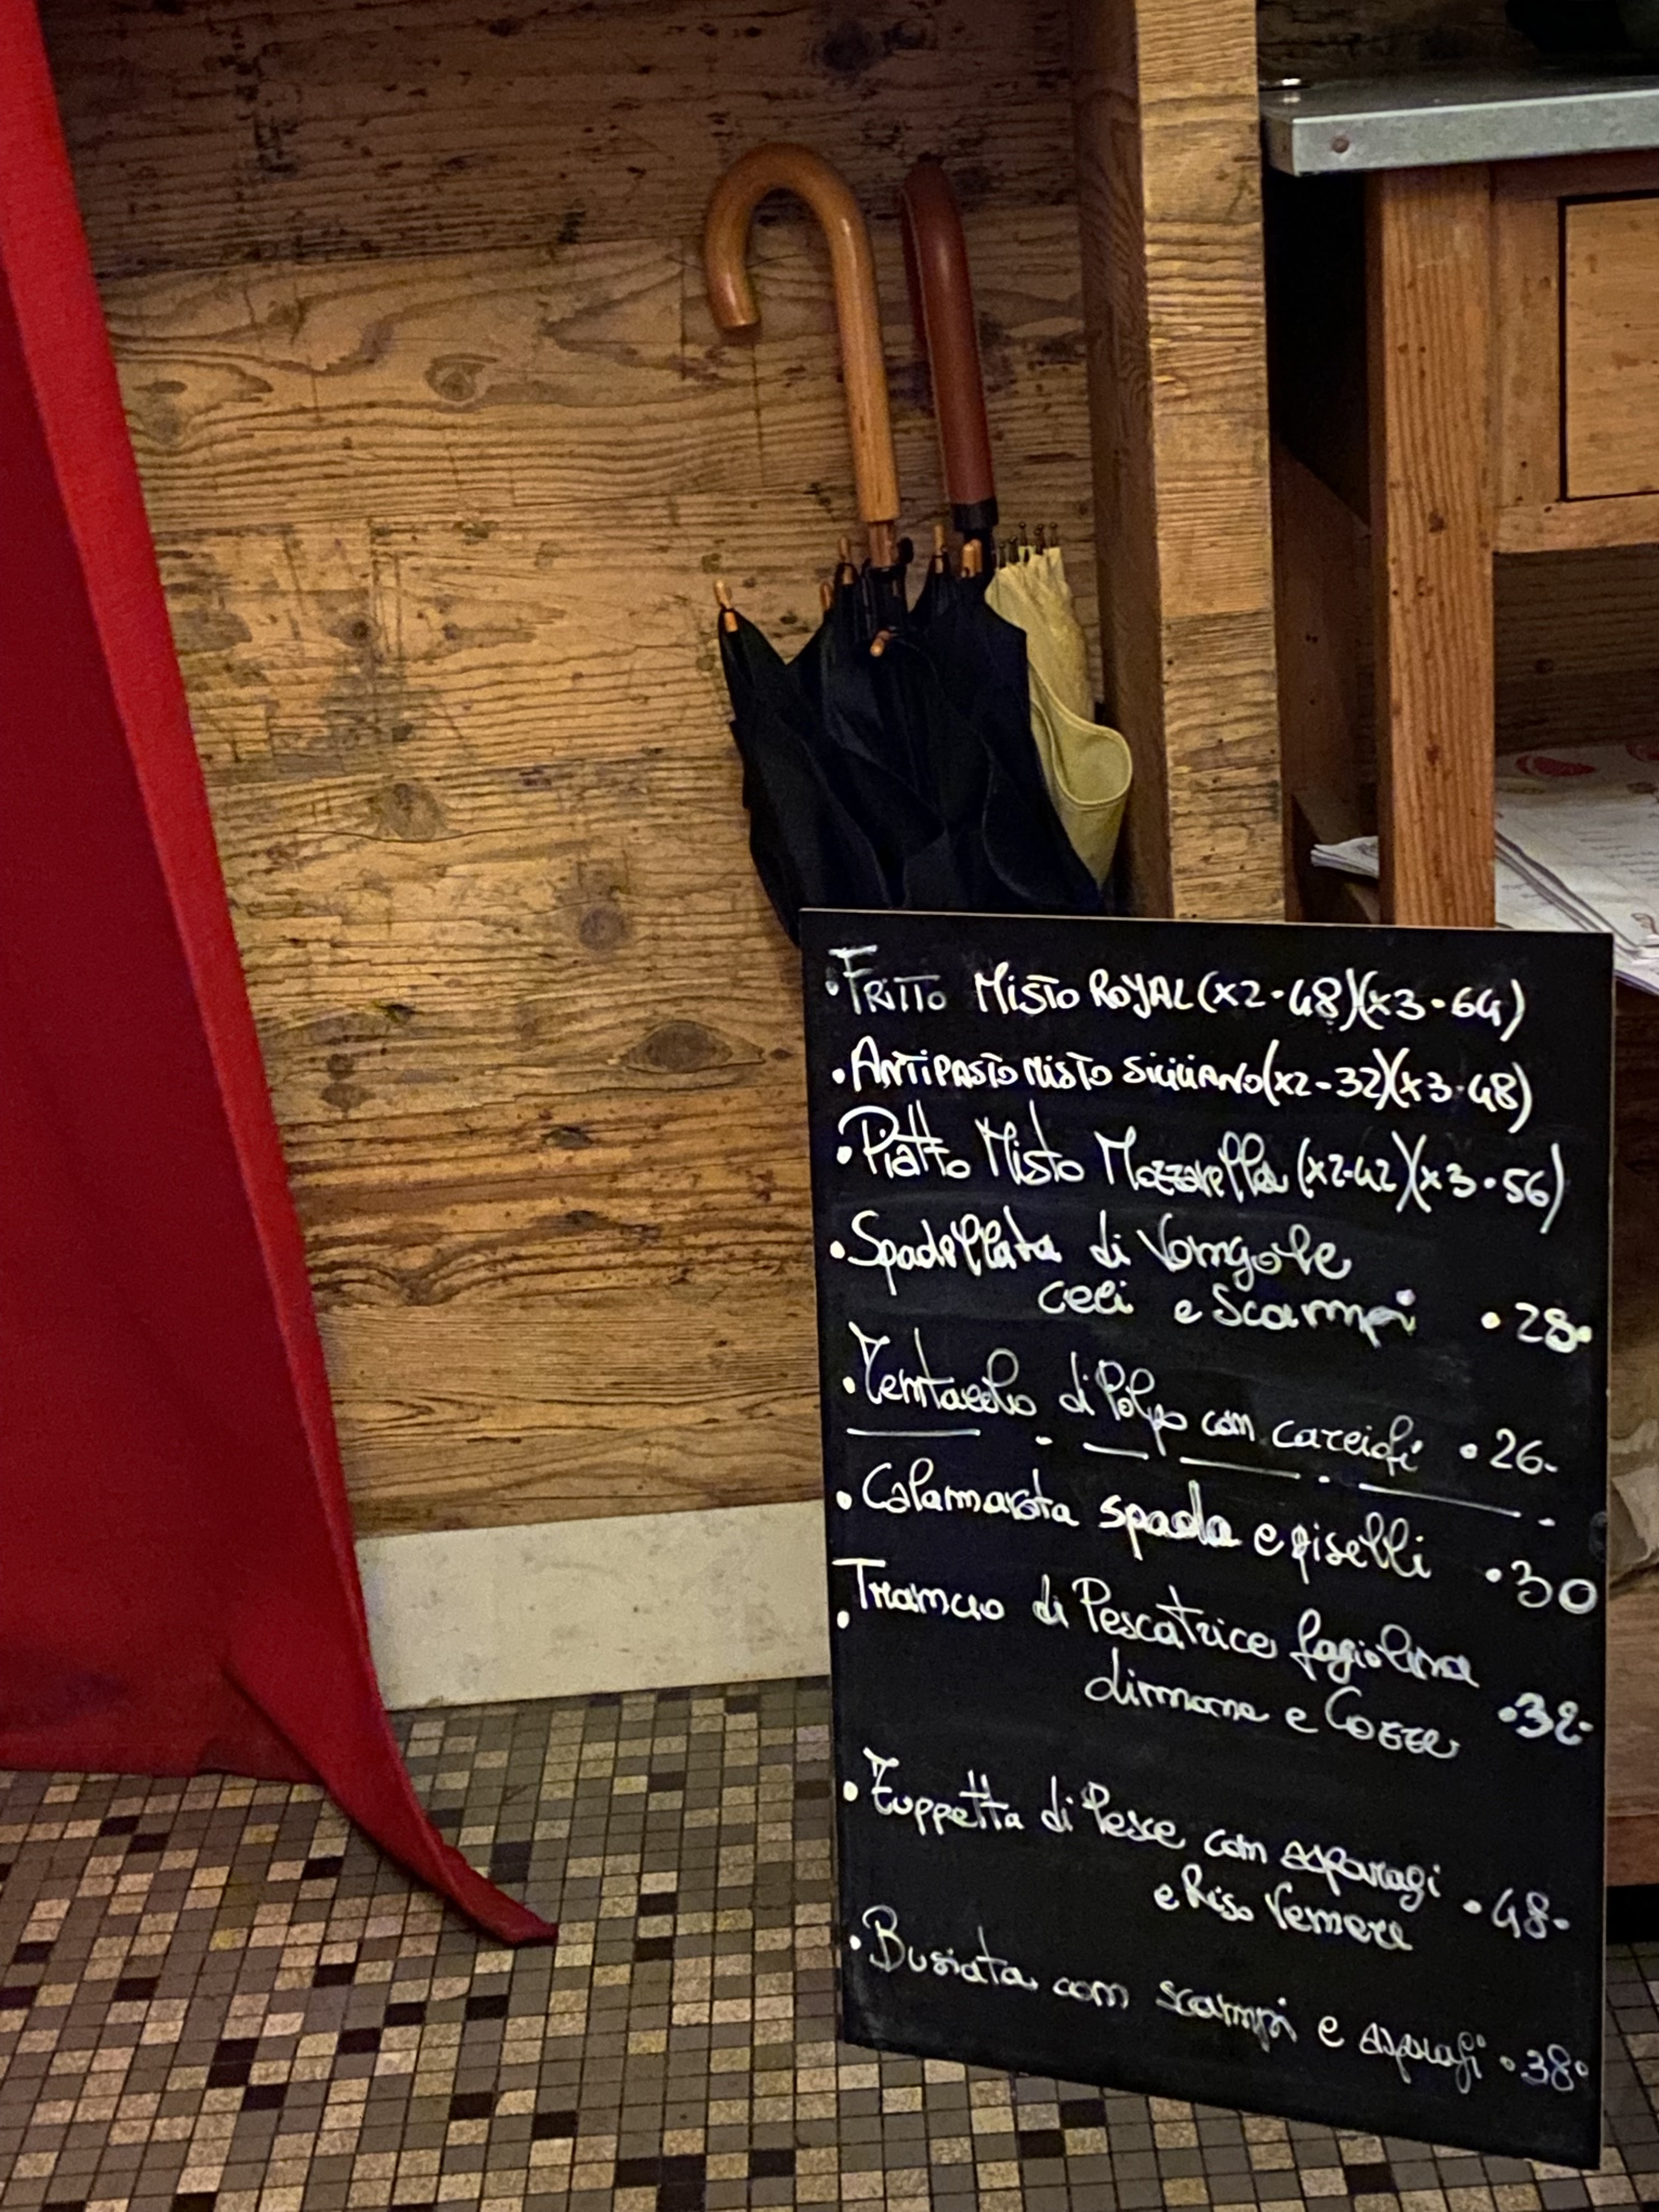 • FRITTO MISTO ROYAL (x2 - 48) (x3 - 64)
• ANTIPASTO MISTO SICILIANO (x2 - 32) (x3 - 48)
• Piatto Misto Mozzarella (x2 - 42) (x3 - 56)
• Spadellata di Vongole
ceci e Scampi • 28 -
• Tentacolo di Polpo con carciofi • 26 -
• Calamarata spada e piselli • 30
• Trancio di Pescatrice fagiolina
e Cozze • 32 -
• Zuppetta di Pesce con asparagi
e Riso Venere • 48 -
• Busiata con scampi e asparagi • 38 -